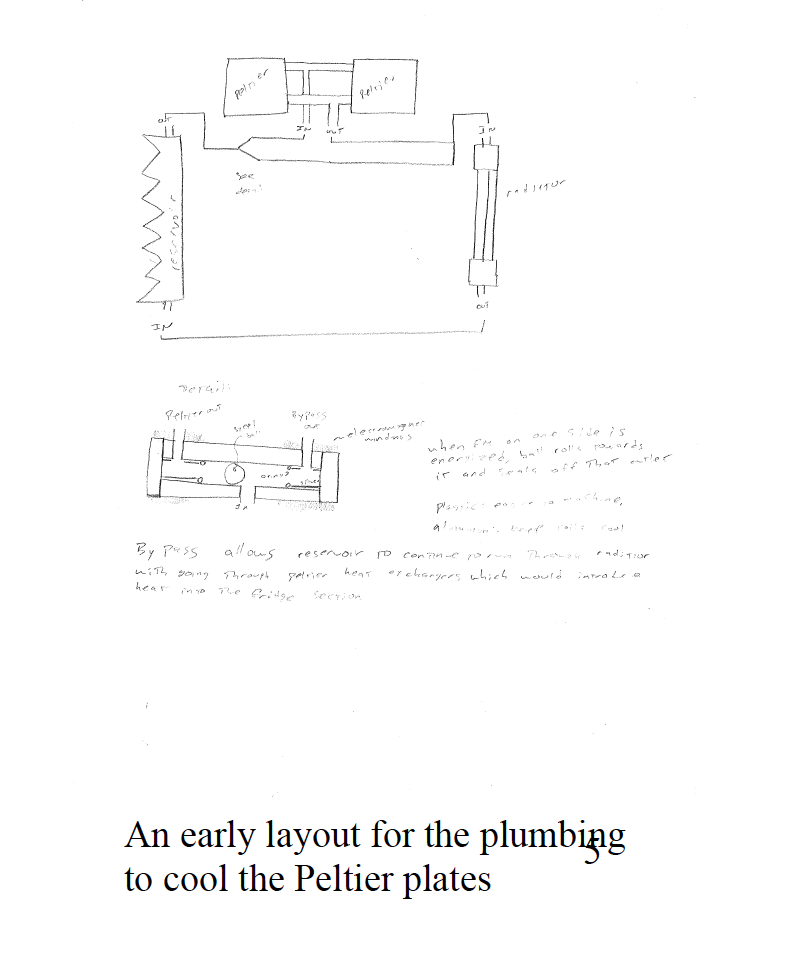 peltier
peltier
out
IN
OUT
IN
See
detail
reservoir
radiator
out
IN
Detail:
Peltier out
steel
ball
Bypass
out
electromagnet
windings
IN
when EM on one side is
energized, ball rolls towards
it and seals off that outlet
Plastic: easier to machine,
By Pass allows reservoir to continue to run through radiator
with going through peltier heat exchangers which would introduce
heat into the fridge section
An early layout for the plumbing
5
to cool the Peltier plates